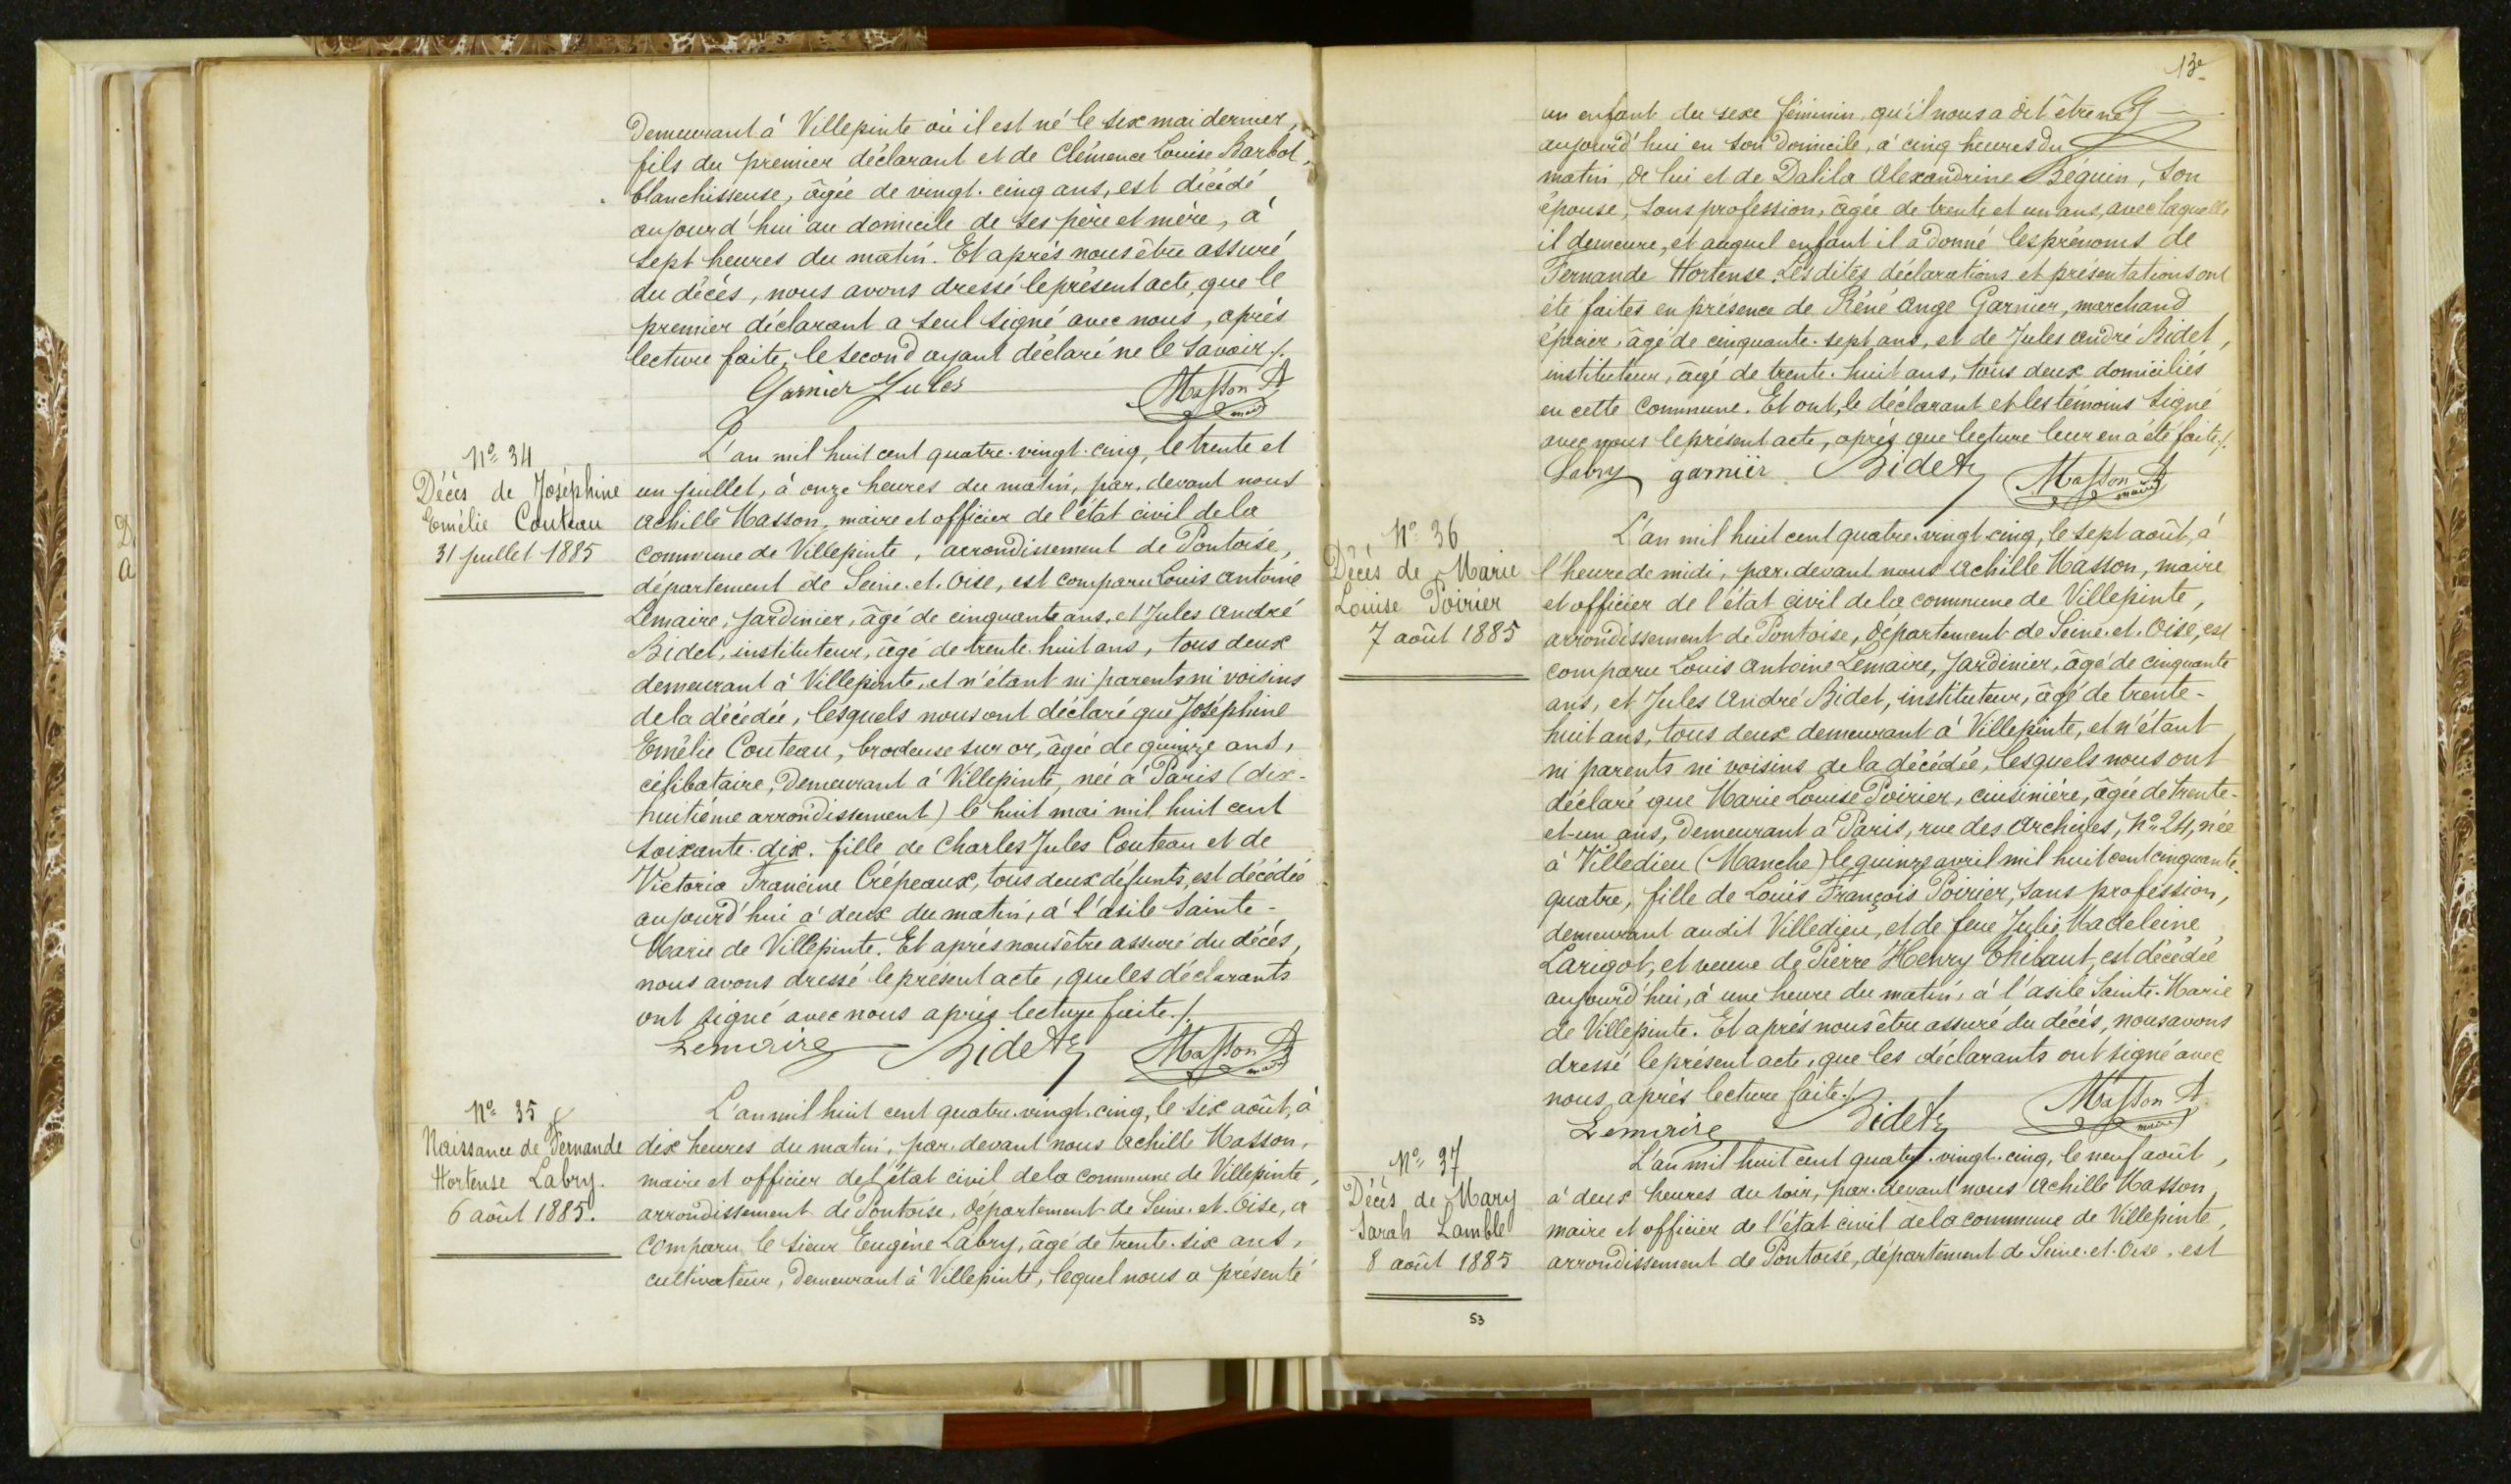 demeurant à Villepinte où il est né le six mai dernier,
fils du premier déclarant et de Clémence Louise Barbot,
blanchisseuse, âgée de vingt-cinq ans, est décédé
aujourd'hui au domicile de ses père et mère, à
sept heures du matin. Et après nous être assuré
du décès, nous avons dressé le présent acte, que le
premier déclarant a seul signé avec nous, après
lecture faite, le second ayant déclaré ne le savoir ./.
Garnier Jules Masson A
maire
N° 34
Décès de Joséphine
Emélie Couteau
31 juillet 1885
L'an mil huit cent quatre-vingt-cinq, le trente et
un juillet, à onze heures du matin, par-devant nous
Achille Masson, maire et officier de l'état civil de la
commune de Villepinte, arrondissement de Pontoise,
département de Seine-et-Oise, est comparu Louis Antoine
Lemaire, jardinier, âgé de cinquante ans, et Jules André
Bidet, instituteur, âgé de trente-huit ans, tous deux
demeurant à Villepinte, et n'étant ni parents ni voisins
de la décédée, lesquels nous ont déclaré que Joséphine
Emélie Couteau, brodeuse sur or, âgée de quinze ans,
célibataire, demeurant à Villepinte, née à Paris (dix-
huitième arrondissement) le huit mai mil huit cent
soixante-dix, fille de Charles Jules Couteau et de
Victoria Francine Crépeaux, tous deux défunts, est décédée
aujourd'hui à deux du matin, à l'asile Sainte-
Marie de Villepinte. Et après nous être assuré du décès,
nous avons dressé le présent acte, que les déclarants
ont signé avec nous après lecture faite ./.
Lemaire Bidet Masson A
maire
N° 35
Naissance de Fernande
Hortense Labry.
6 août 1885.
L'an mil huit cent quatre-vingt-cinq, le six août, à
dix heures du matin, par-devant nous Achille Masson,
maire et officier de l'état civil de la commune de Villepinte,
arrondissement de Pontoise, département de Seine-et-Oise, a
comparu le sieur Eugène Labry, âgé de trente-six ans,
cultivateur, demeurant à Villepinte, lequel nous a présenté
13e
un enfant du sexe féminin, qu'il nous a dit être né
aujourd'hui en son domicile, à cinq heures du
matin, de lui et de Dalila Alexandrine Béguin, son
épouse, sans profession, âgée de trente et un ans, avec laquelle
il demeure, et auquel enfant il a donné les prénoms de
Fernande Hortense. Lesdites déclarations et présentations ont
été faites en présence de Réné Ange Garnier, marchand
épicier, âgé de cinquante-sept ans, et de Jules André Bidet,
instituteur, âgé de trente-huit ans, tous deux domiciliés
en cette commune. Et ont, le déclarant et les témoins signé
avec nous le présent acte, après que lecture leur en a été faite ./.
Labry garnier Bidet Masson A
maire
N° 36
Décès de Marie
Louise Poirier
7 août 1885
L'an mil huit cent quatre-vingt-cinq, le sept août, à
l'heure de midi, par-devant nous Achille Masson, maire
et officier de l'état civil de la commune de Villepinte,
arrondissement de Pontoise, département de Seine-et-Oise, est
comparu Louis Antoine Lemaire, jardinier, âgé de cinquante
ans, et Jules André Bidet, instituteur, âgé de trente-
huit ans, tous deux demeurant à Villepinte, et n'étant
ni parents ni voisins de la décédée, lesquels nous ont
déclaré que Marie Louise Poirier, cuisinière, âgée de trente-
et-un ans, demeurant à Paris, rue des Archives, N° 24, née
à Villedieu (Manche) le quinze avril mil huit cent cinquante-
quatre, fille de Louis François Poirier, sans profession,
demeurant audit Villedieu, et de feue Julie Madeleine
Larigot, et veuve de Pierre Henry Thibaut, est décédée
aujourd'hui, à une heure du matin, à l'asile Sainte-Marie
de Villepinte. Et après nous être assuré du décès, nous avons
dressé le présent acte, que les déclarants ont signé avec
nous après lecture faite ./.
Lemaire Bidet Masson A
maire
N° 37
Décès de Mary
Sarah Lamble
8 août 1885
L'an mil huit cent quatre-vingt-cinq, le neuf août,
à deux heures du soir, par-devant nous Achille Masson,
maire et officier de l'état civil de la commune de Villepinte,
arrondissement de Pontoise, département de Seine-et-Oise, est
53
D.
a